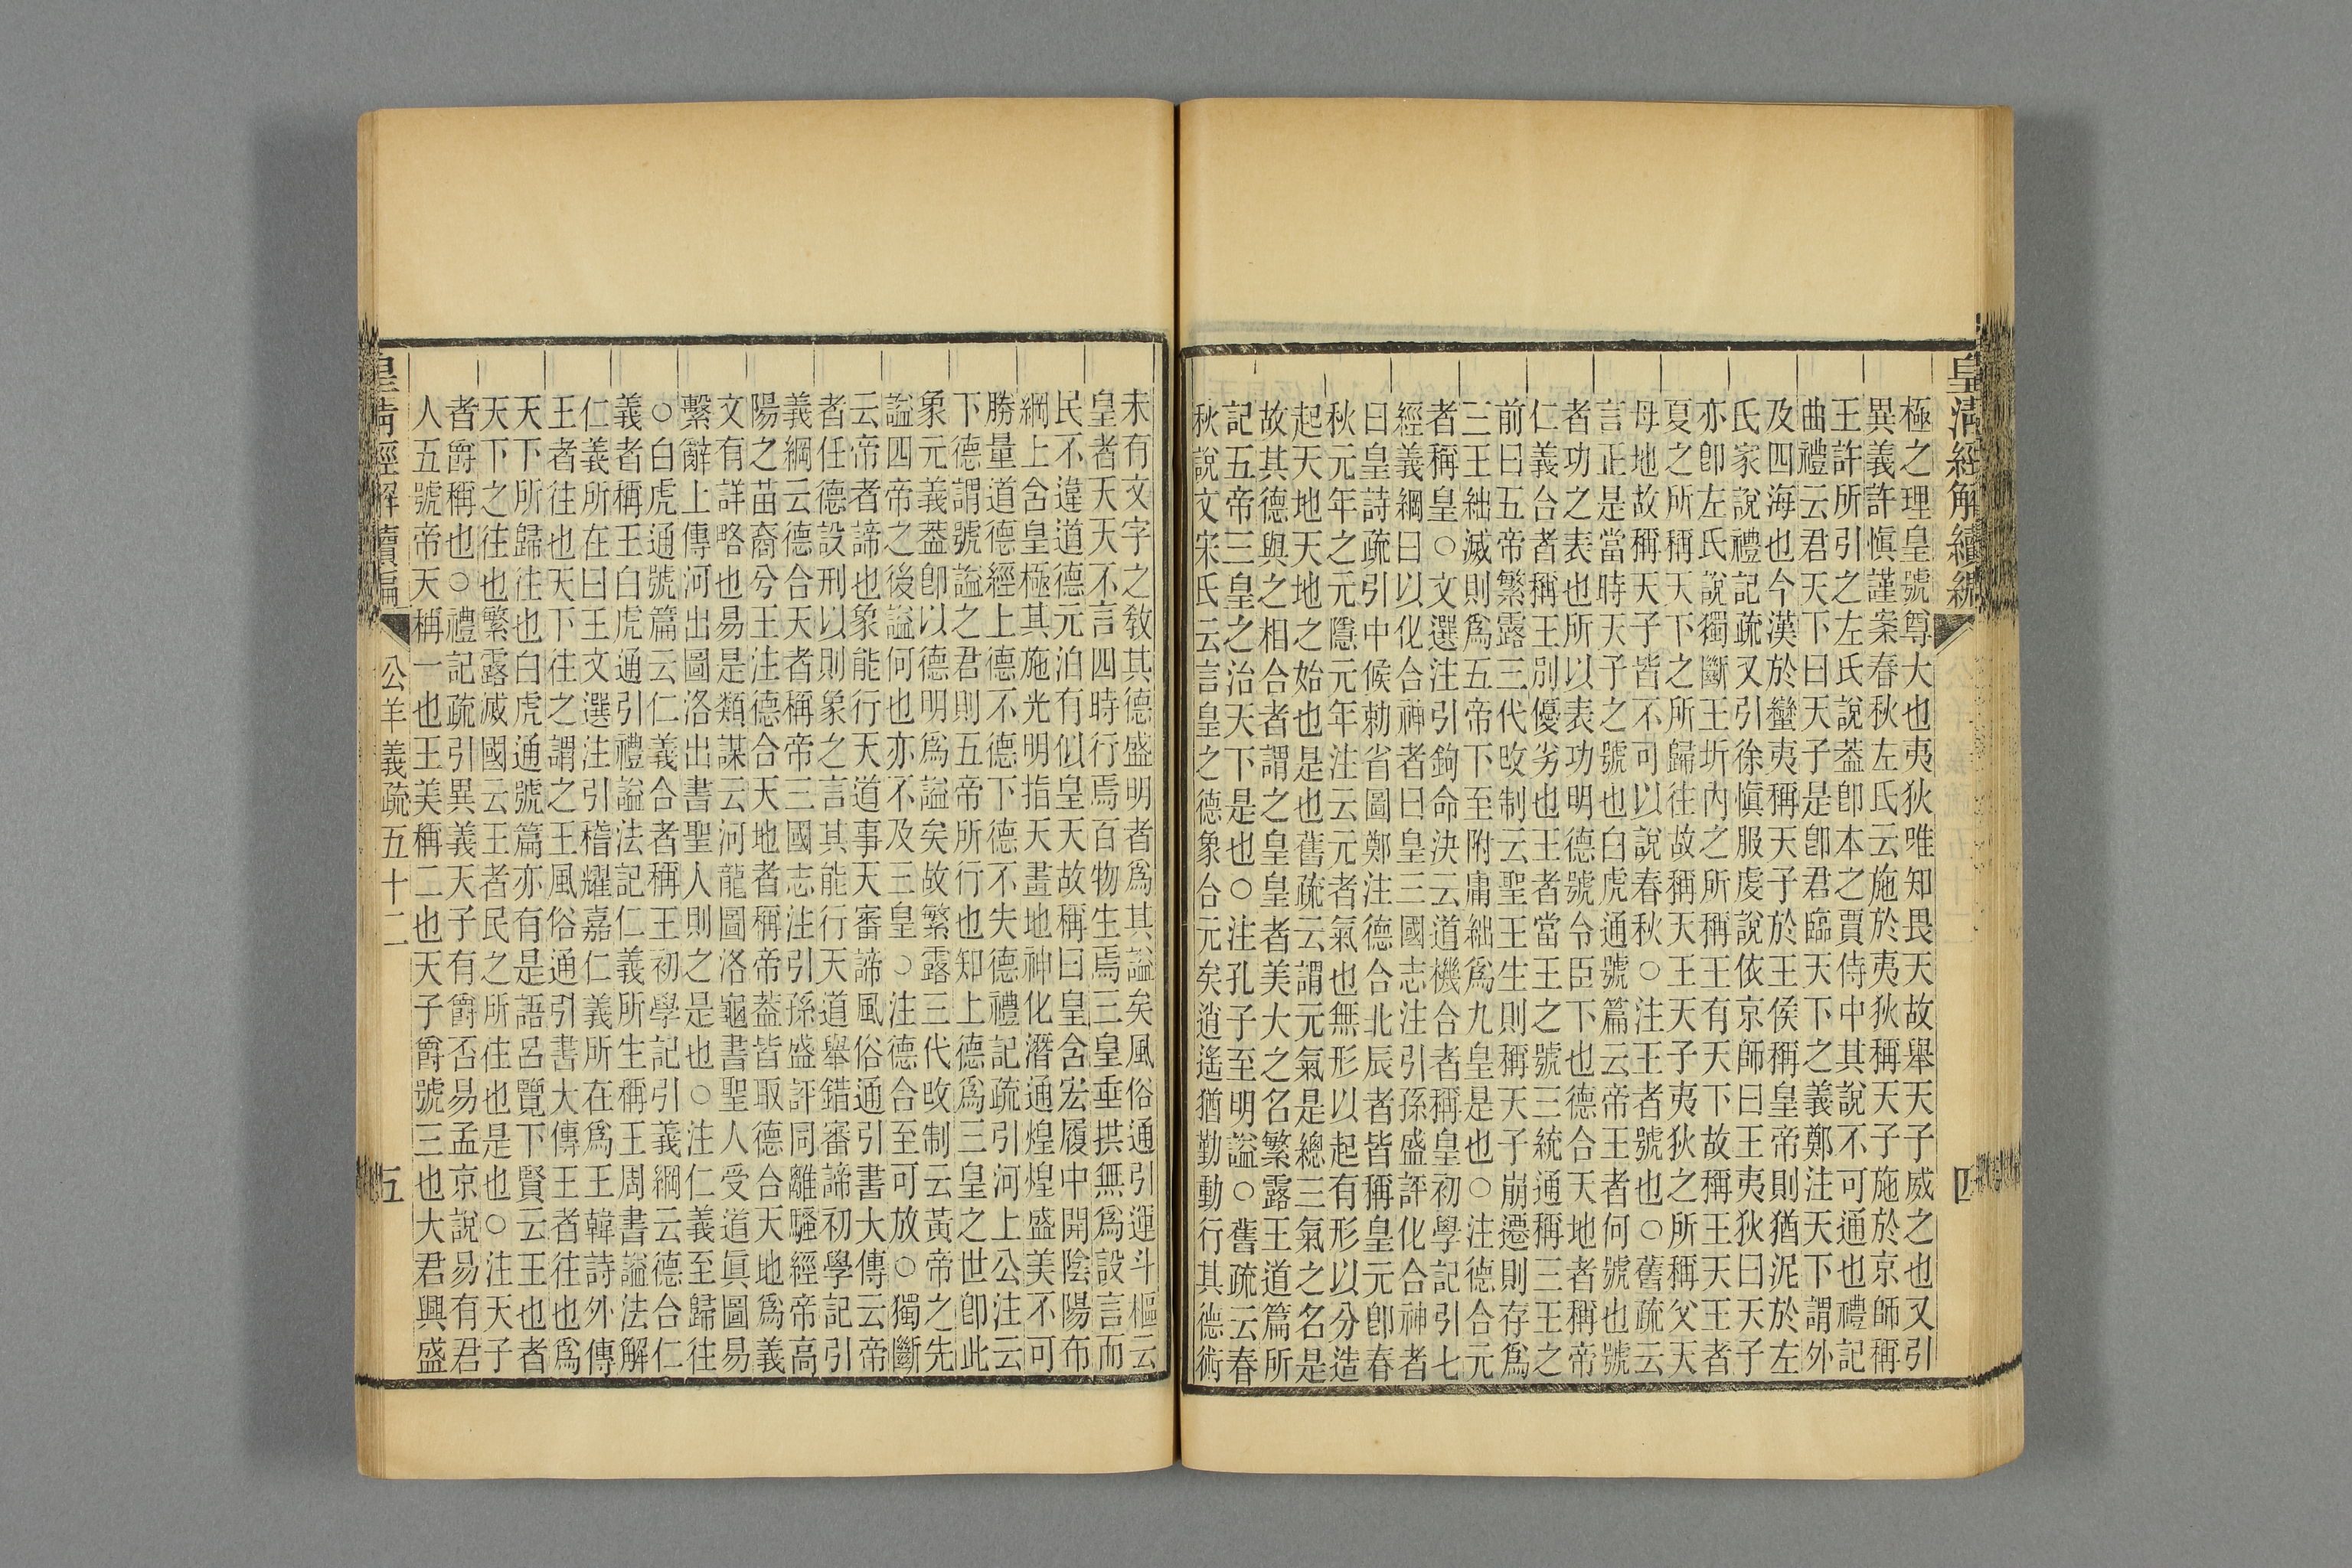 皇清經解續編 四
極之理皇號尊大也夷狄唯知畏天故舉天子威之也又引
異義許愼謹案春秋左氏云施於夷狄稱天子施於京師稱
王許所引之左氏說葢卽本之賈侍中其說不可通也禮記
曲禮云君天下曰天子是卽君臨天下之義鄭注天下謂外
及四海也今漢於蠻夷稱天子於王侯稱皇帝則猶泥於左
氏家說禮記疏又引徐愼服虔說依京師曰王夷狄曰天子
亦卽左氏說獨斷王圻內之所稱王有天下故稱王天王者
夏之所稱天下之所歸往故稱天王天子夷狄之所稱父天
母地故稱天子皆不可以說春秋○注王者號也○舊疏云
言正是當時天子之號也白虎通號篇云帝王者何號也號
者功之表也所以表功明德號令臣下也德合天地者稱帝
仁義合者稱王別優劣也王者當王之號三統通稱三王之
前曰五帝繁露三代攺制云聖王生則稱天子崩遷則存爲
三王絀滅則爲五帝下至附庸絀爲九皇是也○注德合元
者稱皇○文選注引鉤命決云道機合者稱皇初學記引七
經義綱曰以化合神者曰皇三國志注引孫盛評化合神者
曰皇詩疏引中候勅省圖鄭注德合北辰者皆稱皇元卽春
秋元年之元隱元年注云元者氣也無形以起有形以分造
起天地天地之始也是也舊疏云謂元氣是總三氣之名是
故其德與之相合者謂之皇皇者美大之名繁露王道篇所
記五帝三皇之治天下是也○注孔子至明謚○舊疏云春
秋說文宋氏云言皇之德象合元矣逍遙猶勤動行其德術
未有文字之敎其德盛明者爲其謚矣風俗通引運斗樞云
皇者天天不言四時行焉百物生焉三皇垂拱無爲設言而
民不違道德元泊有似皇天故稱曰皇皇含宏履中開陰陽布
綱上含皇極其施光明指天畫地神化潛通煌煌盛美不可
勝量道德經上德不德下德不失德禮記疏引河上公注云
下德謂號謚之君則五帝所行也知上德爲三皇之世卽此
象元義葢卽以德明爲謚矣故繁露三代攺制云黃帝之先
謚四帝之後謚何也亦不及三皇○注德合至可放○獨斷
云帝者諦也象能行天道事天審諦風俗通引書大傳云帝
者任德設刑以則象之言其能行天道舉錯審諦初學記引
義綱云德合天者稱帝三國志注引孫盛評同離騷經帝高
陽之苗裔兮王注德合天地者稱帝葢皆取德合天地爲義
文有詳略也易是類謀云河龍圖洛龜書聖人受道眞圖易
繫辭上傳河出圖洛出書聖人則之是也○注仁義至歸往
○白虎通號篇云仁義合者稱王初學記引義綱云德合仁
義者稱王白虎通引禮謚法記仁義所生稱王周書謚法解
仁義所在曰王文選注引稽耀嘉仁義所在爲王韓詩外傳
王者往也天下往之謂之王風俗通引書大傳王者往也爲
天下所歸往也白虎通號篇亦有是語呂覽下賢云王也者
天下之往也繁露滅國云王者民之所往也是也○注天子
者爵稱也○禮記疏引異義天子有爵否易孟京說易有君
人五號帝天稱一也王美稱二也天子爵號三也大君興盛
皇清經解續編 公羊義疏五十二 五